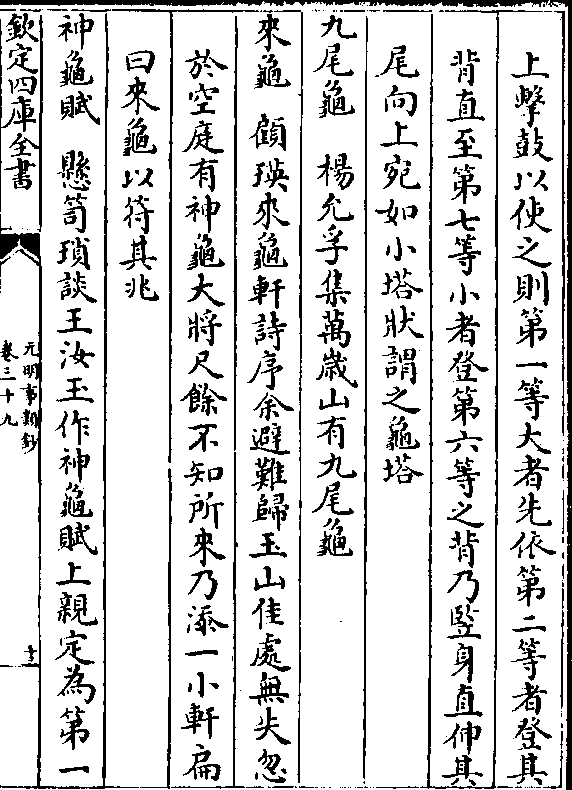 上擊鼓以使之則第一等大者先依第二等者登其
背直至第七等小者登第六等之背乃竪身直伸其
尾向上宛如小塔狀謂之龜塔
九尾龜　楊允孚集萬歲山有九尾龜
來龜　顧瑛來龜軒詩序余避難歸玉山佳處無失忽
於空庭有神龜大將尺餘不知所來乃添一小軒扁
曰來龜以待其兆
神龜賦　懸笥瑣談王汝玉作神龜賦上親定為第一
欽定四庫全書
元明事類鈔
卷三十九
十三